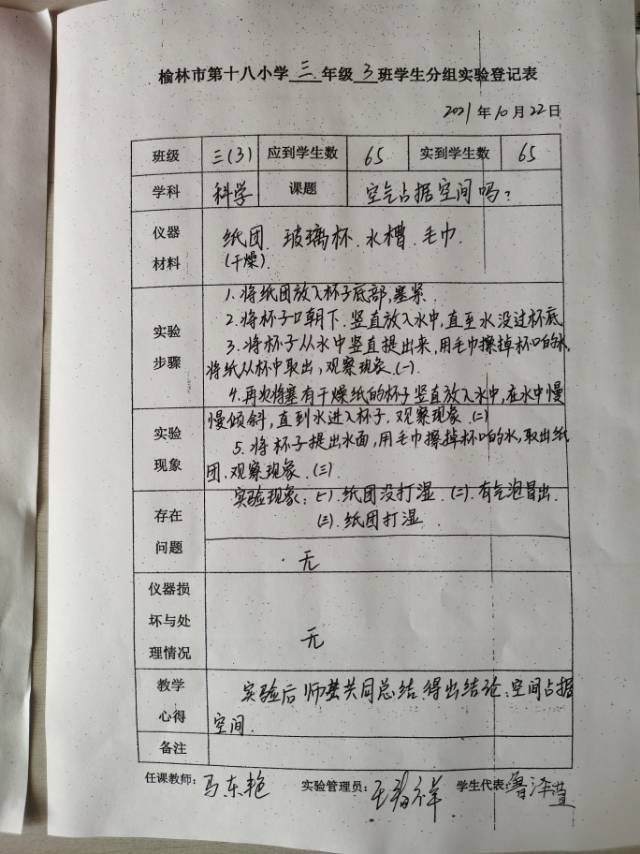 榆林市第十八小学三年级3班学生分组实验登记表
2021年10月22日
班级 三(3) 应到学生数 65 实到学生数 65
学科 科学 课题 空气占据空间吗?
仪器材料 纸团.玻璃杯.水槽.毛巾.
(干燥)
实验步骤
1.将纸团放入杯子底部,塞紧.
2.将杯子口朝下.竖直放入水中,直至水没过杯底
3.将杯子从水中竖直提出来,用毛巾擦掉杯口的水,
将纸从杯中取出,观察现象.(一)
4.再次将塞有干燥纸的杯子竖直放入水中,在水中慢
慢倾斜,直到水进入杯子.观察现象.(二)
实验现象
5.将杯子提出水面,用毛巾擦掉杯口的水,取出纸
团.观察现象.(三)
实验现象:(一).纸团没打湿.(二).有气泡冒出.
(三).纸团打湿.
存在问题
无
仪器损坏与处理情况
无
教学心得
实验后师生共同总结.得出结论:空间占据
空间.
备注
任课教师:马东艳 实验管理员:王 祥 学生代表:鲁泽莹